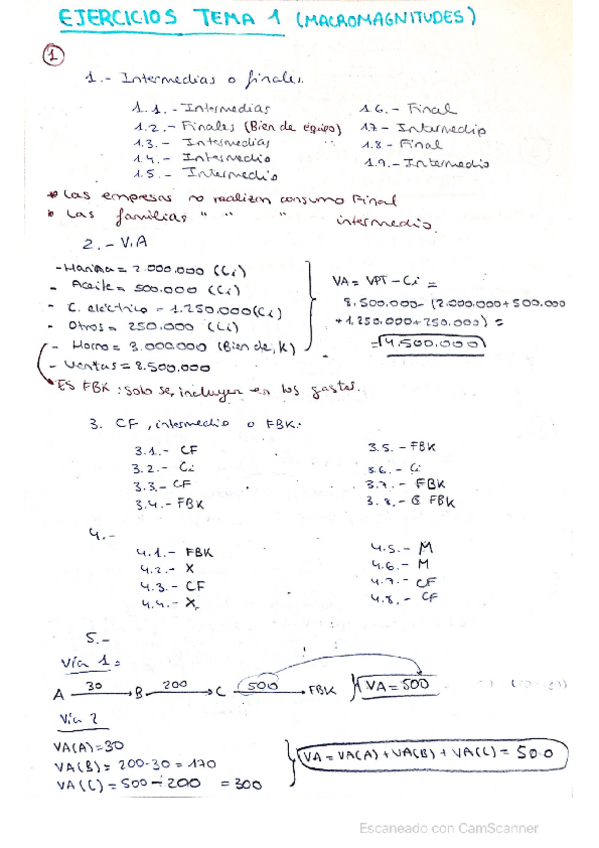 EJERCICIOS TEMA 1 (MACROMAGNITUDES)
1
1.- Intermedias o finales.
1.1.- Intermedias
1.2.- Finales (Bien de equipo)
1.3.- Intermedias
1.4.- Intermedio
1.5.- Intermedio
1.6.- Final
1.7- Intermedio
1.8- Final
1.9.- Intermedio
* Las empresas no realizan consumo Final
* Las familias " " " intermedio.
2.- V.A
- Harina = 2.000.000 (Ci)
- Aceite = 500.000 (Ci)
- C. eléctrico = 1.250.000 (Ci)
- Otros = 250.000 (Ci)
- Horno = 3.000.000 (Bien de K)
- Ventas = 8.500.000
ES FBK: solo se incluyen en los gastos.
VA = VPT - Ci =
8.500.000 - (2.000.000 + 500.000
+ 1.250.000 + 250.000) =
= 4.500.000
3. CF, intermedio o FBK.
3.1.- CF
3.2.- Ci
3.3.- CF
3.4.- FBK
3.5.- FBK
3.6.- Ci
3.7.- FBK
3.8.- FBK
4.-
4.1.- FBK
4.2.- X
4.3.- CF
4.4.- X
4.5.- M
4.6.- M
4.7.- CF
4.8.- CF
5.-
Vía 1 =
A 30 B 200 C 500 FBK VA = 500
Vía 2
VA(A) = 30
VA(B) = 200 - 30 = 170
VA(C) = 500 - 200 = 300
VA = VA(A) + VA(B) + VA(C) = 500
Escaneado con CamScanner